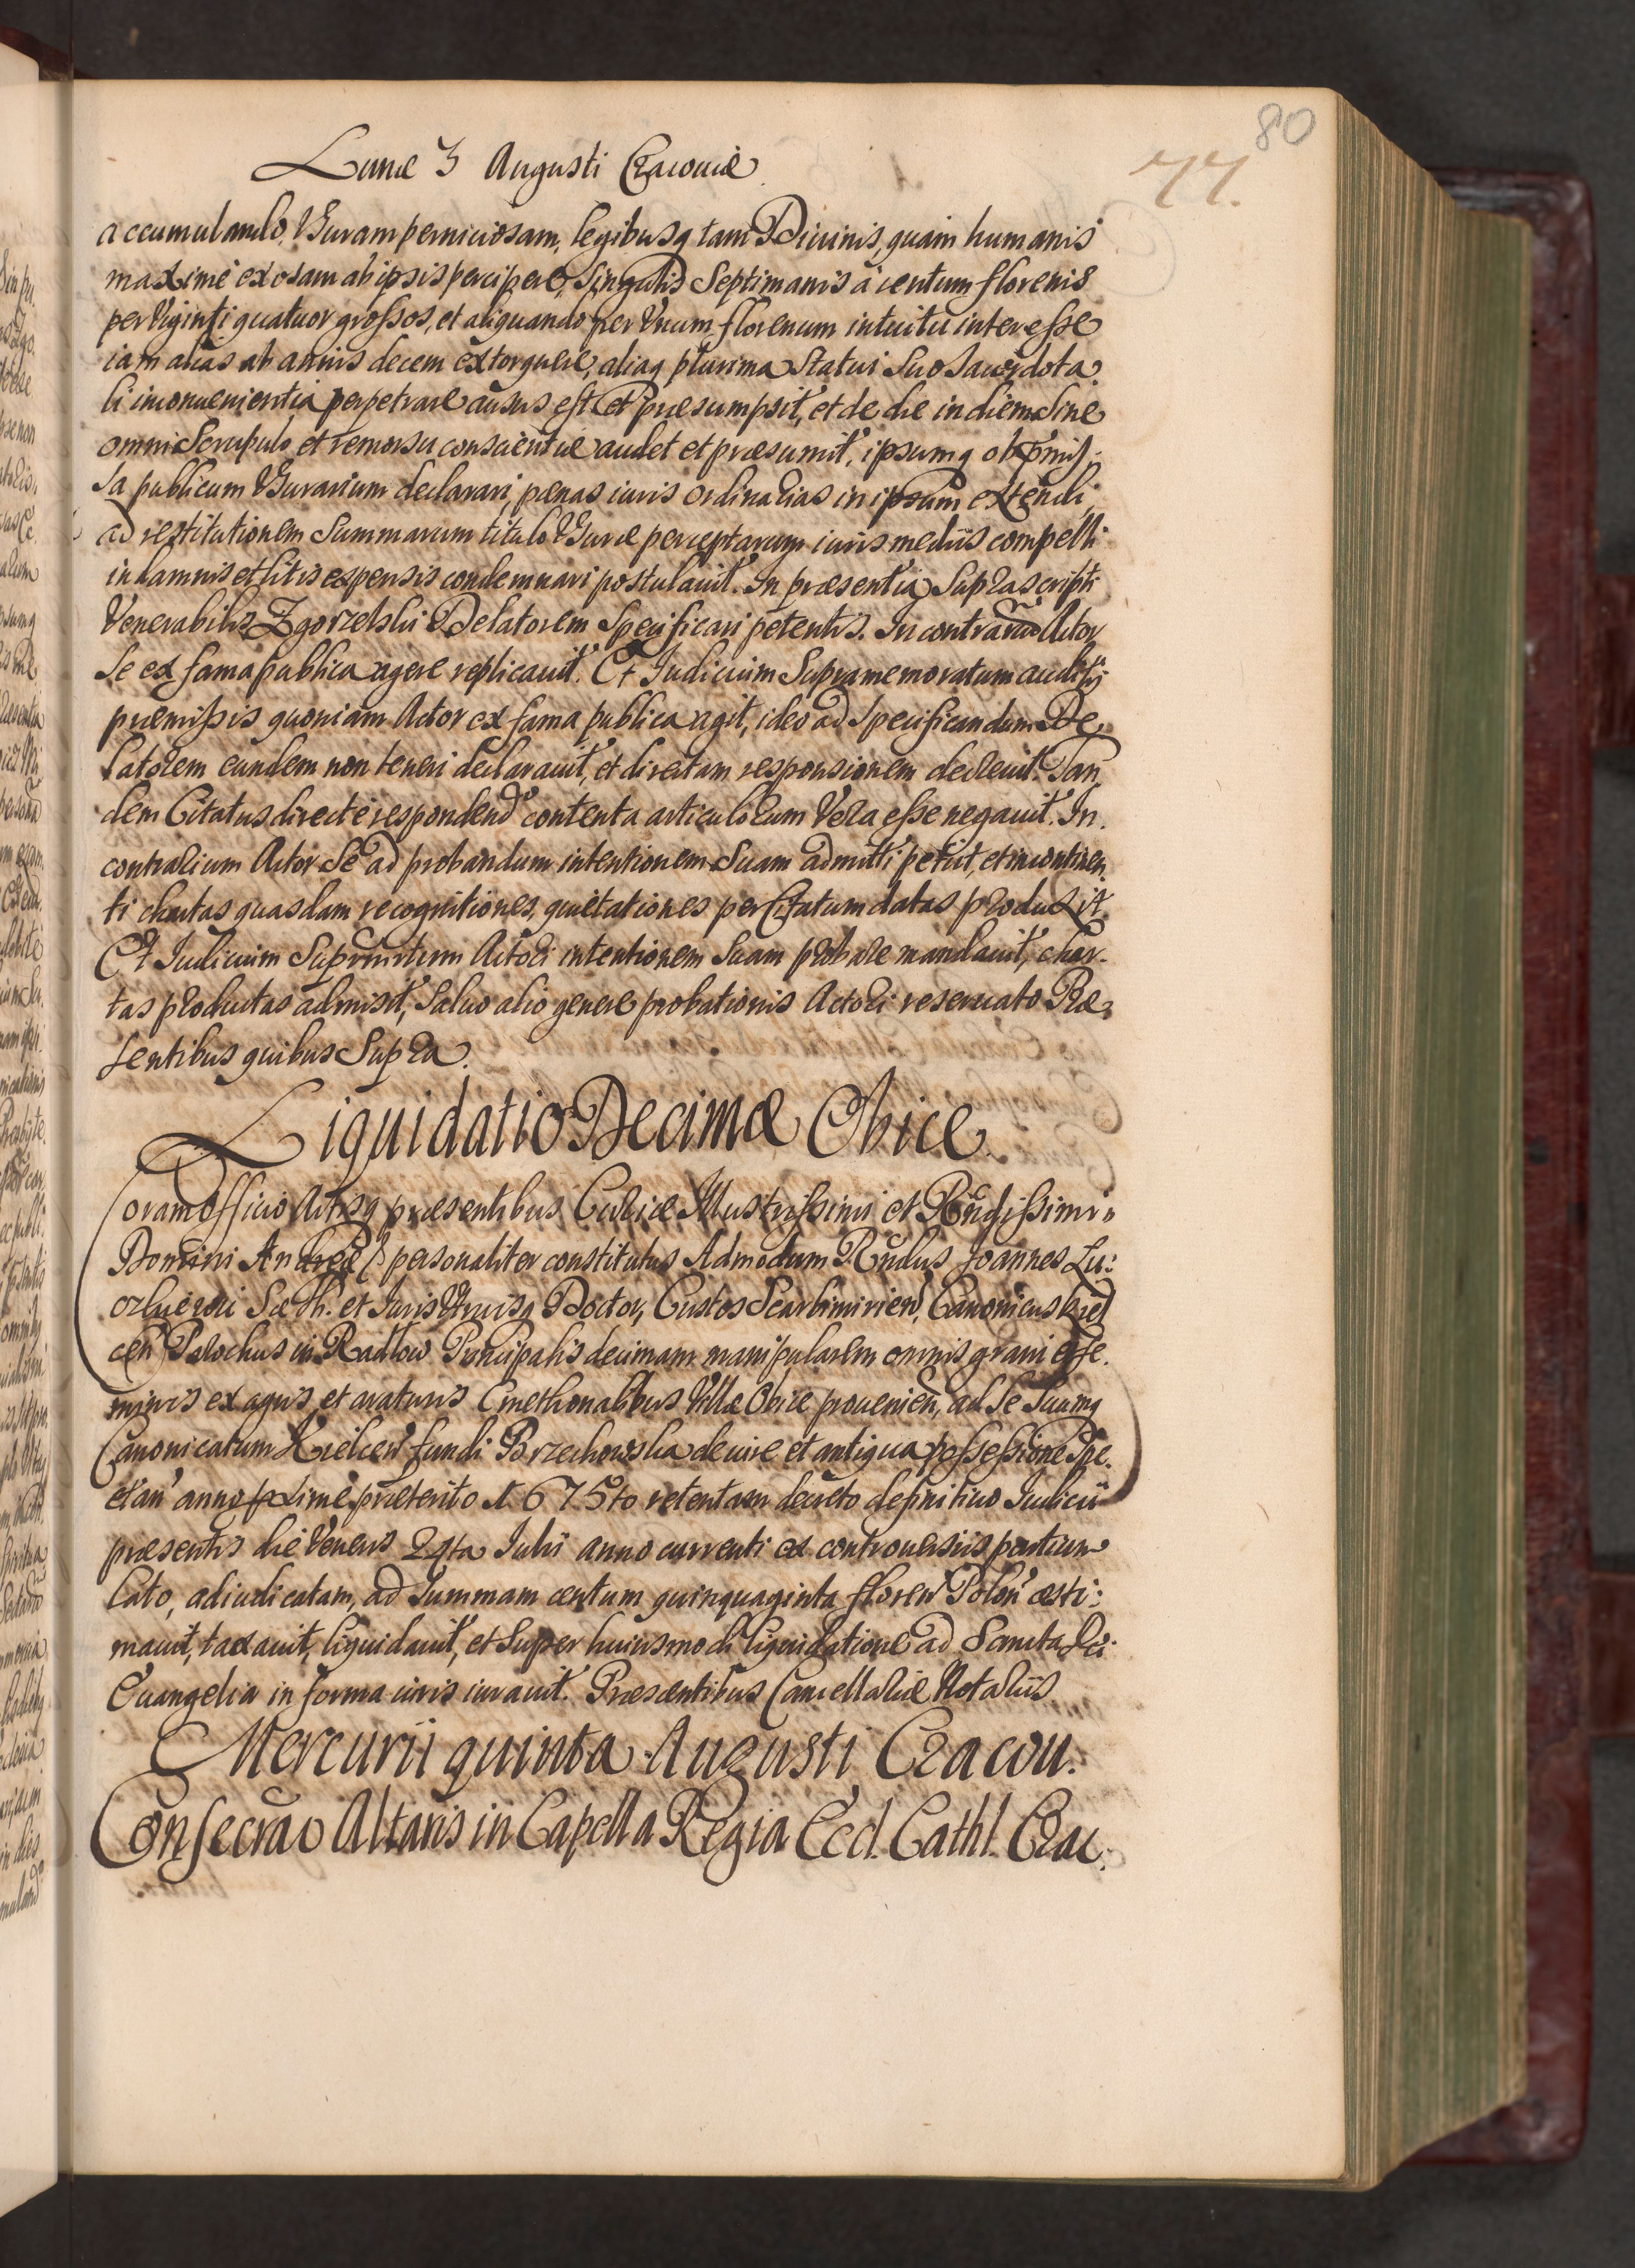 80
77.
Lunæ 3 Augusti Cracouiæ
accumulando. Vsuram perniciosam, legibusq tam Diuinis, quam humanis
maximé exosam ab ipsis percipere, singulis Septimanis á centum florenis
per Viginti quatuor grossos, et aliquando per Vnum florenum intuitu interesse
iam alias ab annis decem extorquere, aliaq plurima Statui Suo Sacerdota
li inconuenientia perpetrare ausus est et præsumpsit, et de die in diem Sine
omni Scrupulo et remorsu conscientiæ audet et præsumit, ipsumq ob pmis
sa publicum Vsurarium declarari, pænas iuris ordinarias in ipsum extendi,
ad restitutionem Summarum titulo Vsuræ perceptarum iuris mediis compelli
in damnis et litis expensis condemnari postulauit. In præsentia Suprascripti
Venerabilis Zgorzelski Delatorem Specificari petentis. In contrariũ Actor
Se ex fama publica agere replicauit. Et Iudicium Supramemoratum auditis
præmissis quoniam Actor ex fama publica agit, ideo ad Specificandum De
latorem eundem non teneri declarauit, et directam responsionem decreuit. Tan
dem Citatus directé respondendo contenta articulorum Vera esse negauit. In
contrarium Actor Se ad probandum intentionem Suam admitti petiit, et in continen
ti chartas quasdam recognitiones, quietationes per Citatum datas produxit.
Et Iudicium Suprmrtum Actori intentionem Suam probare mandauit, char-
tas productas admisit, Saluo alio genere probationis Actori reseruato Præ
sentibus quibus Supra.
Liquidatio Decimæ Obice
Coram Officio Actisq præsentibus Curiæ Illustrissimi et Rndissimi
Domini Andreæ personaliter constitutus Admodum Rndus Joannes Lu:
Sæ Th. et Iuris Vtriusq Doctor, Custos Scarbimirien, Canonicus Kiel
cen Parochus in Radlow Principalis decimam manipularem omnis grani esse
minis ex agris et araturis Cmethonalibus Villæ Obice prouenien, ad Se Suumq
Canonicatum Kielcen fundi Brzechowska de iure et antiqua possessione Spe
ctan anno pxime præterito 1675to retentam decreto definitiuo Iudicii
præsentis die Veneris 24ta Iulii anno currenti ex controuersiis partium
lato, adiudicatam, ad Summam centum quinquaginta floren Polon æsti:
mauit, taxauit, liquidauit, et Super huiusmodi liquidatione ad Sancta Dei
Euangelia in forma iuris iurauit. Præsentibus Cancellariæ Notariis
Mercurii quinta Augusti Cracou:
Consecrão Altaris in Capella Regia Eccl. Cathl. Crac: